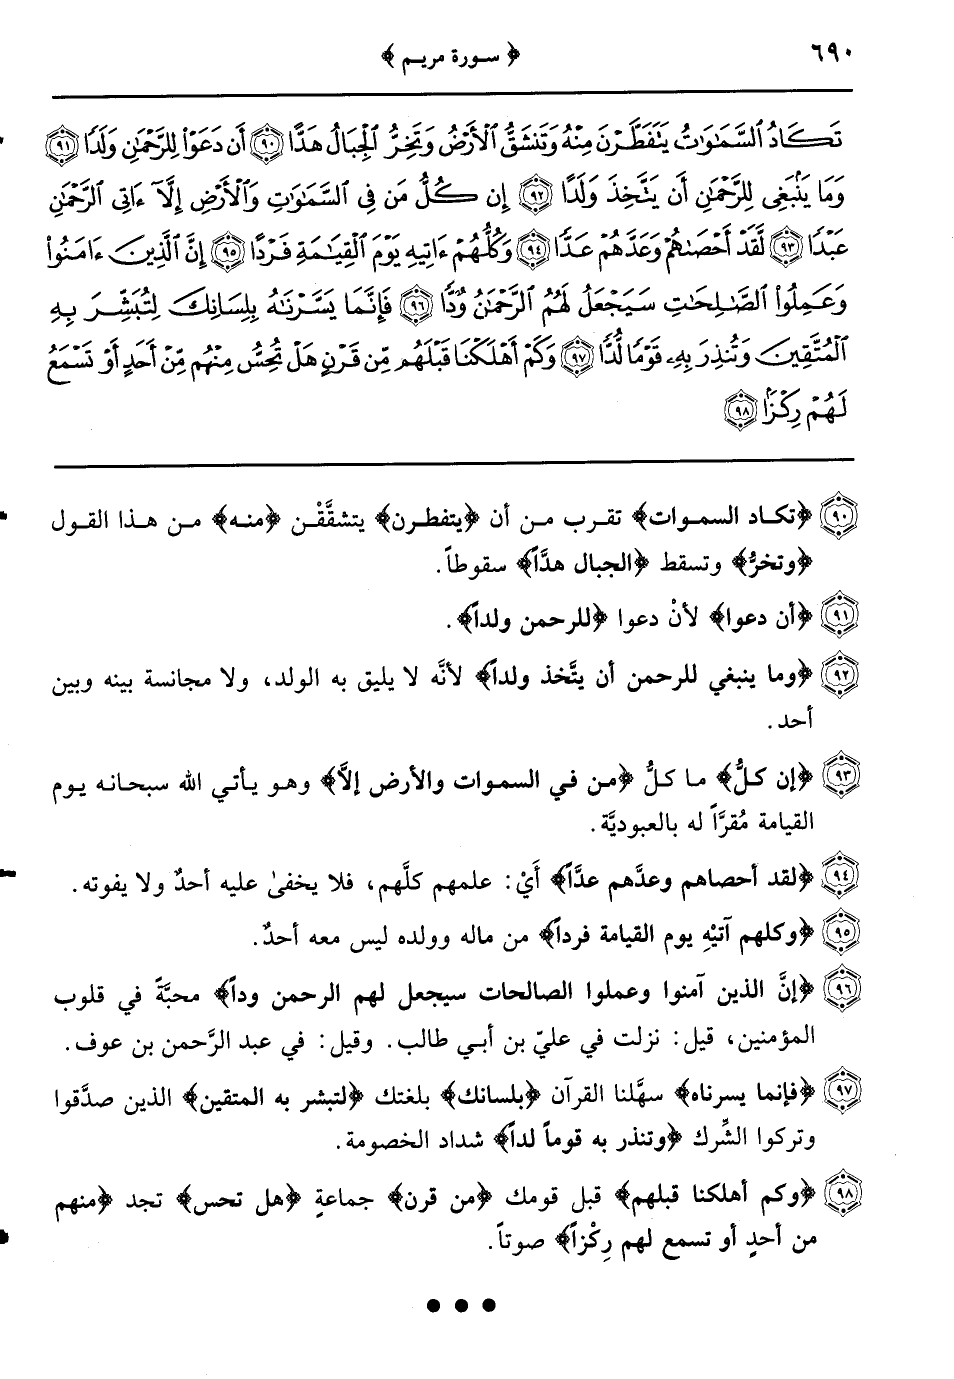 ٦٩٠
﴿ سورة مريم ﴾
تَكَادُ ٱلسَّمَٰوَٰتُ يَتَفَطَّرْنَ مِنْهُ وَتَنشَقُّ ٱلْأَرْضُ وَتَخِرُّ ٱلْجِبَالُ هَدًّا ﴿٩٠﴾ أَن دَعَوْا۟ لِلرَّحْمَٰنِ وَلَدًا ﴿٩١﴾
وَمَا يَنۢبَغِى لِلرَّحْمَٰنِ أَن يَتَّخِذَ وَلَدًا ﴿٩٢﴾ إِن كُلُّ مَن فِى ٱلسَّمَٰوَٰتِ وَٱلْأَرْضِ إِلَّآ ءَاتِى ٱلرَّحْمَٰنِ
عَبْدًا ﴿٩٣﴾ لَّقَدْ أَحْصَىٰهُمْ وَعَدَّهُمْ عَدًّا ﴿٩٤﴾ وَكُلُّهُمْ ءَاتِيهِ يَوْمَ ٱلْقِيَٰمَةِ فَرْدًا ﴿٩٥﴾ إِنَّ ٱلَّذِينَ ءَامَنُوا۟
وَعَمِلُوا۟ ٱلصَّٰلِحَٰتِ سَيَجْعَلُ لَهُمُ ٱلرَّحْمَٰنُ وُدًّا ﴿٩٦﴾ فَإِنَّمَا يَسَّرْنَٰهُ بِلِسَانِكَ لِتُبَشِّرَ بِهِ
ٱلْمُتَّقِينَ وَتُنذِرَ بِهِۦ قَوْمًا لُّدًّا ﴿٩٧﴾ وَكَمْ أَهْلَكْنَا قَبْلَهُم مِّن قَرْنٍ هَلْ تُحِسُّ مِنْهُم مِّنْ أَحَدٍ أَوْ تَسْمَعُ
لَهُمْ رِكْزًا ﴿٩٨﴾
٩٠ ﴿تكاد السموات﴾ تقرب من أن ﴿يتفطرن﴾ يتشقَّقْن ﴿منه﴾ من هذا القول
﴿وتخرُّ﴾ وتسقط ﴿الجبال هدَّاً﴾ سقوطاً.
٩١ ﴿أن دعوا﴾ لأنْ دعوا ﴿للرحمن ولداً﴾.
٩٢ ﴿وما ينبغي للرحمن أن يتَّخذ ولداً﴾ لأنَّه لا يليق به الولد، ولا مجانسة بينه وبين
أحد.
٩٣ ﴿إن كلُّ﴾ ما كلُّ ﴿من في السموات والأرض إلاَّ﴾ وهو يأتي الله سبحانه يوم
القيامة مُقرَّاً له بالعبوديَّة.
٩٤ ﴿لقد أحصاهم وعدَّهم عدَّاً﴾ أَيْ: علمهم كلَّهم، فلا يخفىٰ عليه أحدٌ ولا يفوته.
٩٥ ﴿وكلهم آتيْهِ يوم القيامة فرداً﴾ من ماله وولده ليس معه أحدٌ.
٩٦ ﴿إنَّ الذين آمنوا وعملوا الصالحات سيجعل لهم الرحمن وداً﴾ محبَّةً في قلوب
المؤمنين، قيل: نزلت في عليّ بن أبي طالب. وقيل: في عبد الرَّحمن بن عوف.
٩٧ ﴿فإنما يسرناه﴾ سهَّلنا القرآن ﴿بلسانك﴾ بلغتك ﴿لتبشر به المتقين﴾ الذين صدَّقوا
وتركوا الشِّرك ﴿وتنذر به قوماً لداً﴾ شداد الخصومة.
٩٨ ﴿وكم أهلكنا قبلهم﴾ قبل قومك ﴿من قرن﴾ جماعةٍ ﴿هل تحس﴾ تجد ﴿منهم
من أحدٍ أو تسمع لهم رِكْزاً﴾ صوتاً.